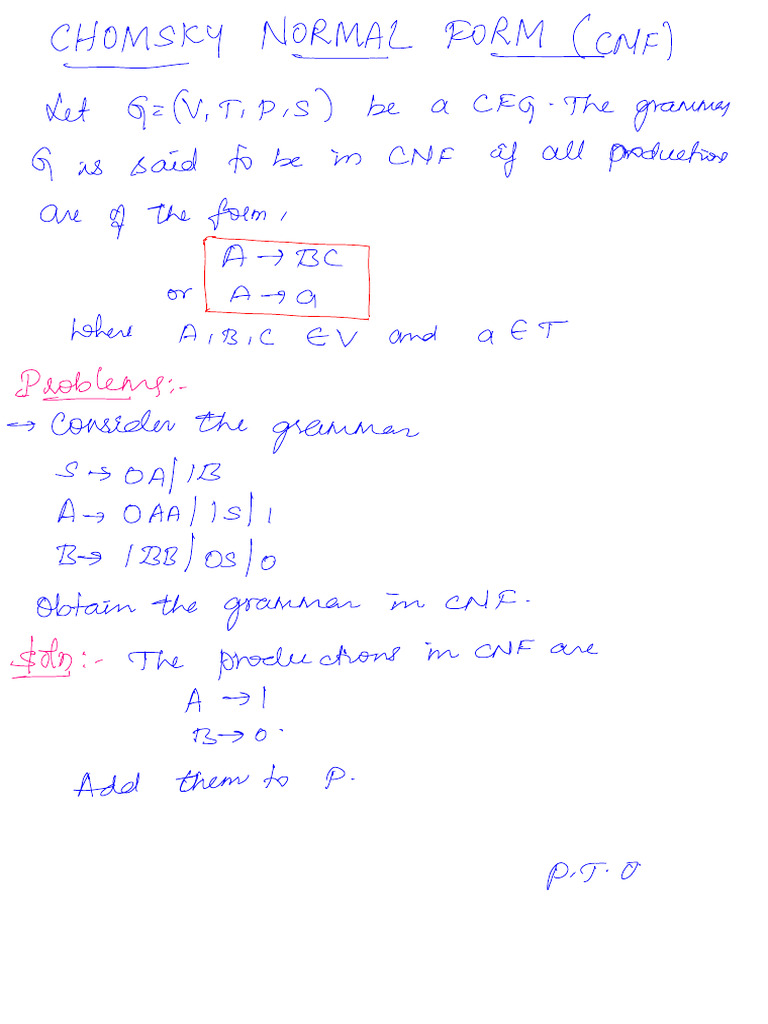 CHOMSKY NORMAL FORM (CNF)
Let G=(V,T,P,S) be a CFG. The grammar
G is said to be in CNF if all productions
are of the form,
A → BC
or A → a
where A,B,C ∈ V and a ∈ T
Problems:-
→ Consider the grammar
S → 0A/1B
A → 0AA/1S/1
B → 1BB/0S/0
Obtain the grammar in CNF.
Soln:- The productions in CNF are
A → 1
B → 0.
Add them to P.
P.T.O